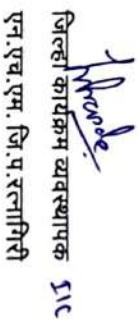 जिल्हा कार्यक्रम व्यवस्थापक I/C
एन.एच.एम. जि.प.रत्नागिरी